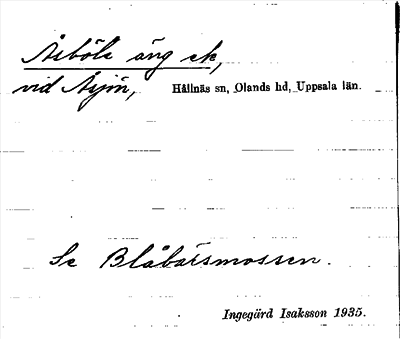 Åsböle äng ek,
vid Åsjön, Hållnäs sn, Olands hd, Uppsala län.
Se Blåbärsmossen.
Ingegärd Isaksson 1935.